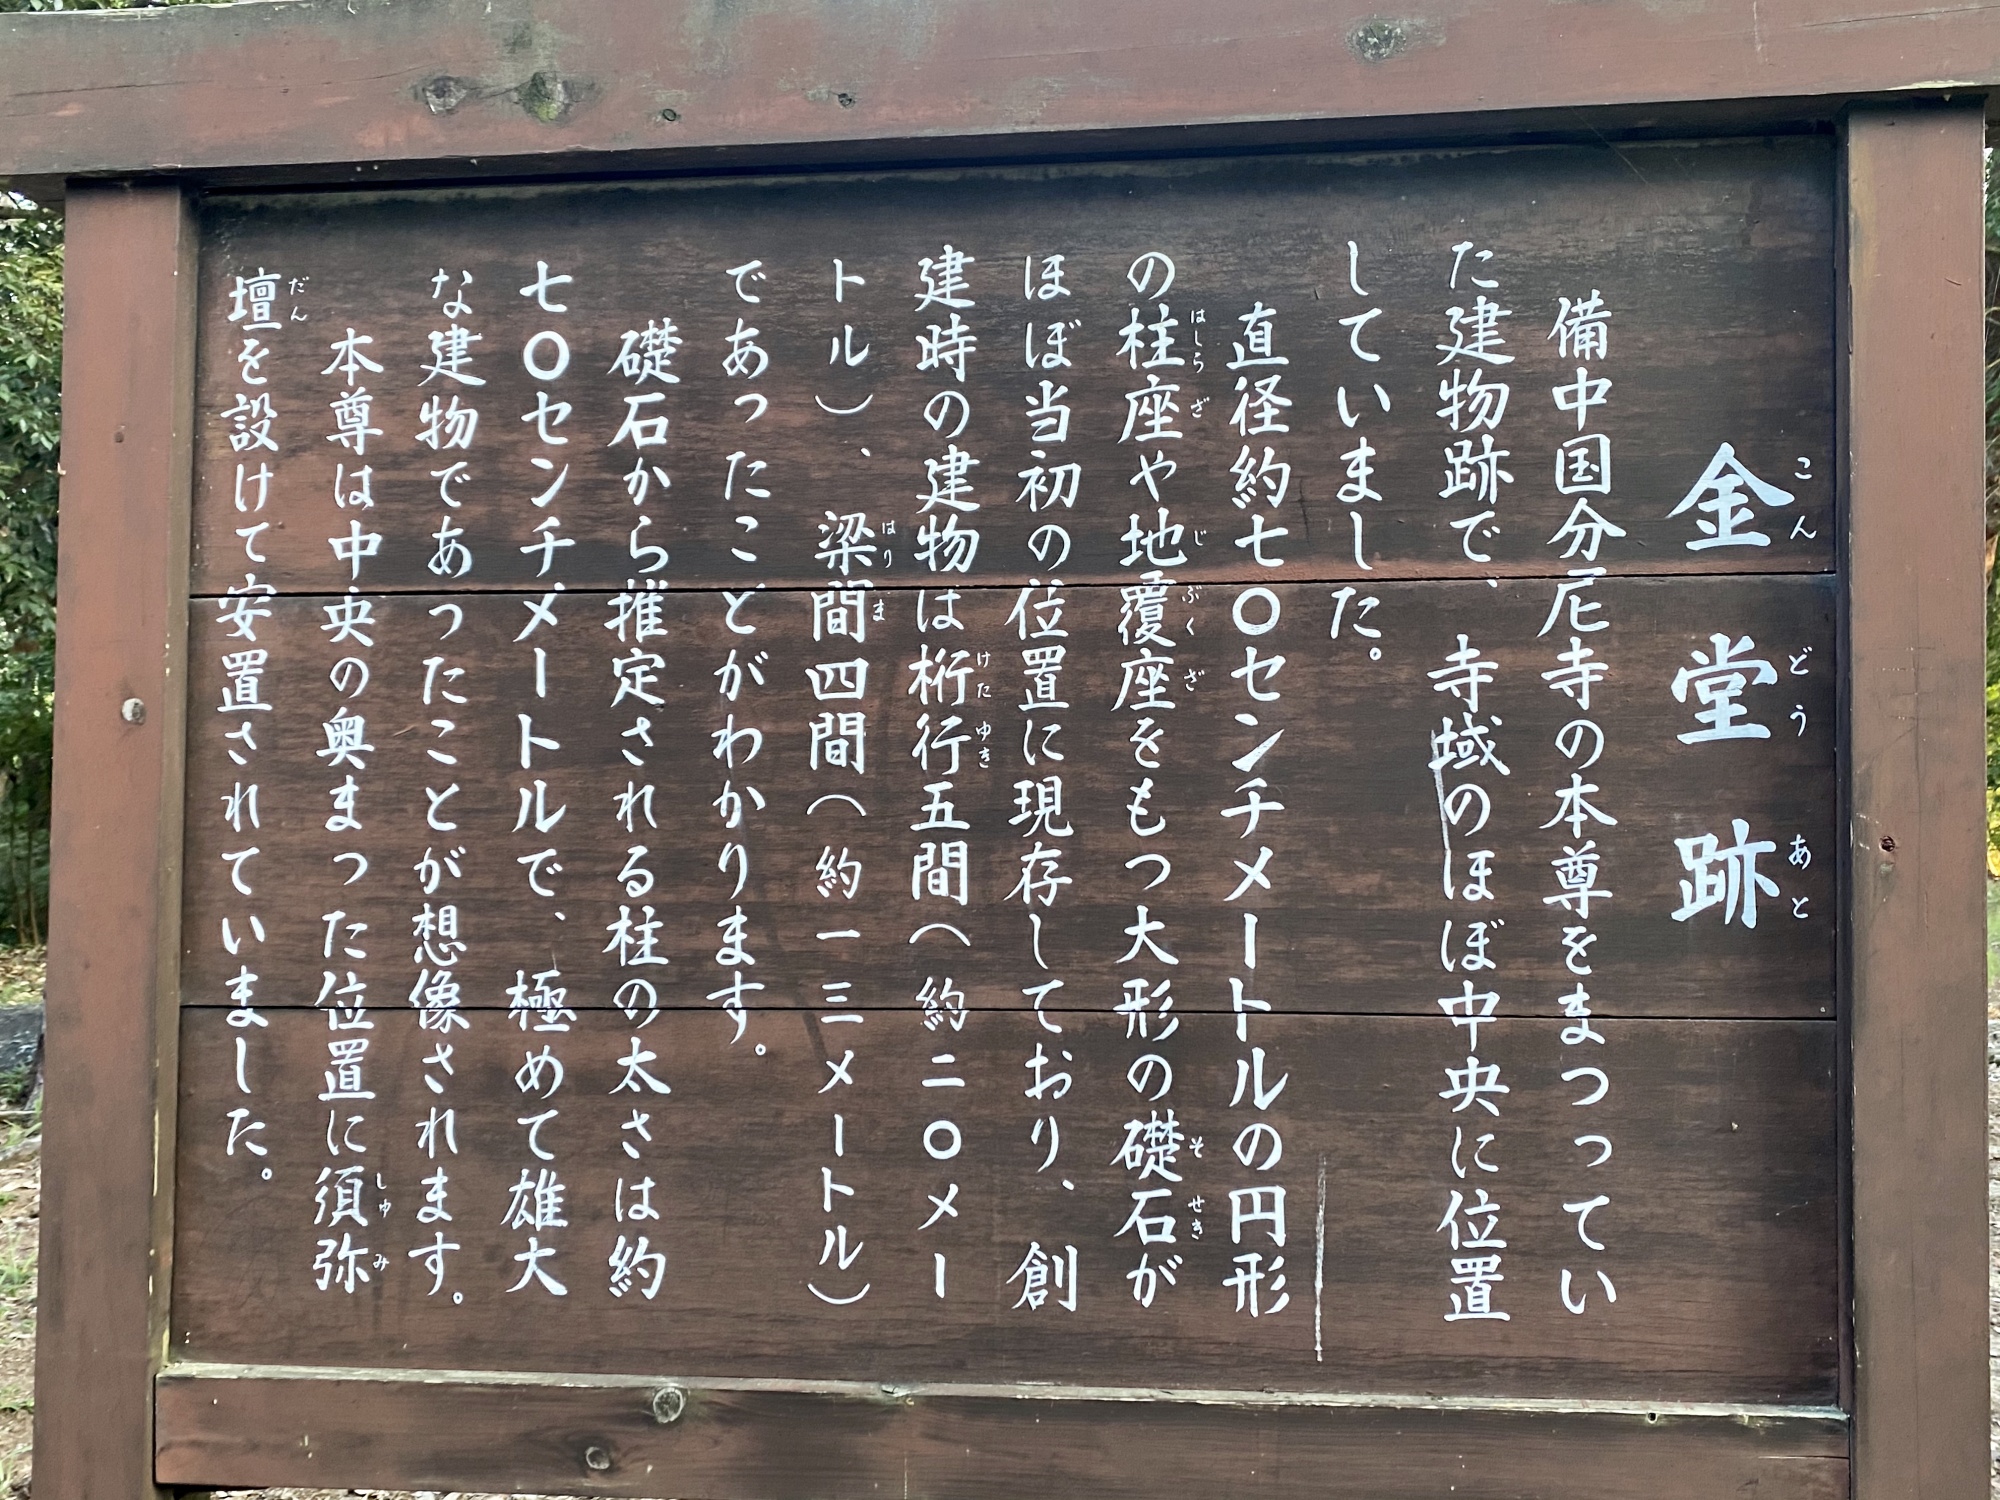 金堂跡
こんどうあと
備中国分尼寺の本尊をまつってい
た建物跡で、寺域のほぼ中央に位置
していました。
直径約七〇センチメートルの円形
の柱座や地覆座をもつ大形の礎石が
はしらざ じぶくざ そせき
ほぼ当初の位置に現存しており、創
建時の建物は桁行五間（約二〇メー
けたゆき
トル）、梁間四間（約一三メートル）
はりま
であったことがわかります。
礎石から推定される柱の太さは約
七〇センチメートルで、極めて雄大
な建物であったことが想像されます。
本尊は中央の奥まった位置に須弥
しゅみ
壇を設けて安置されていました。
だん